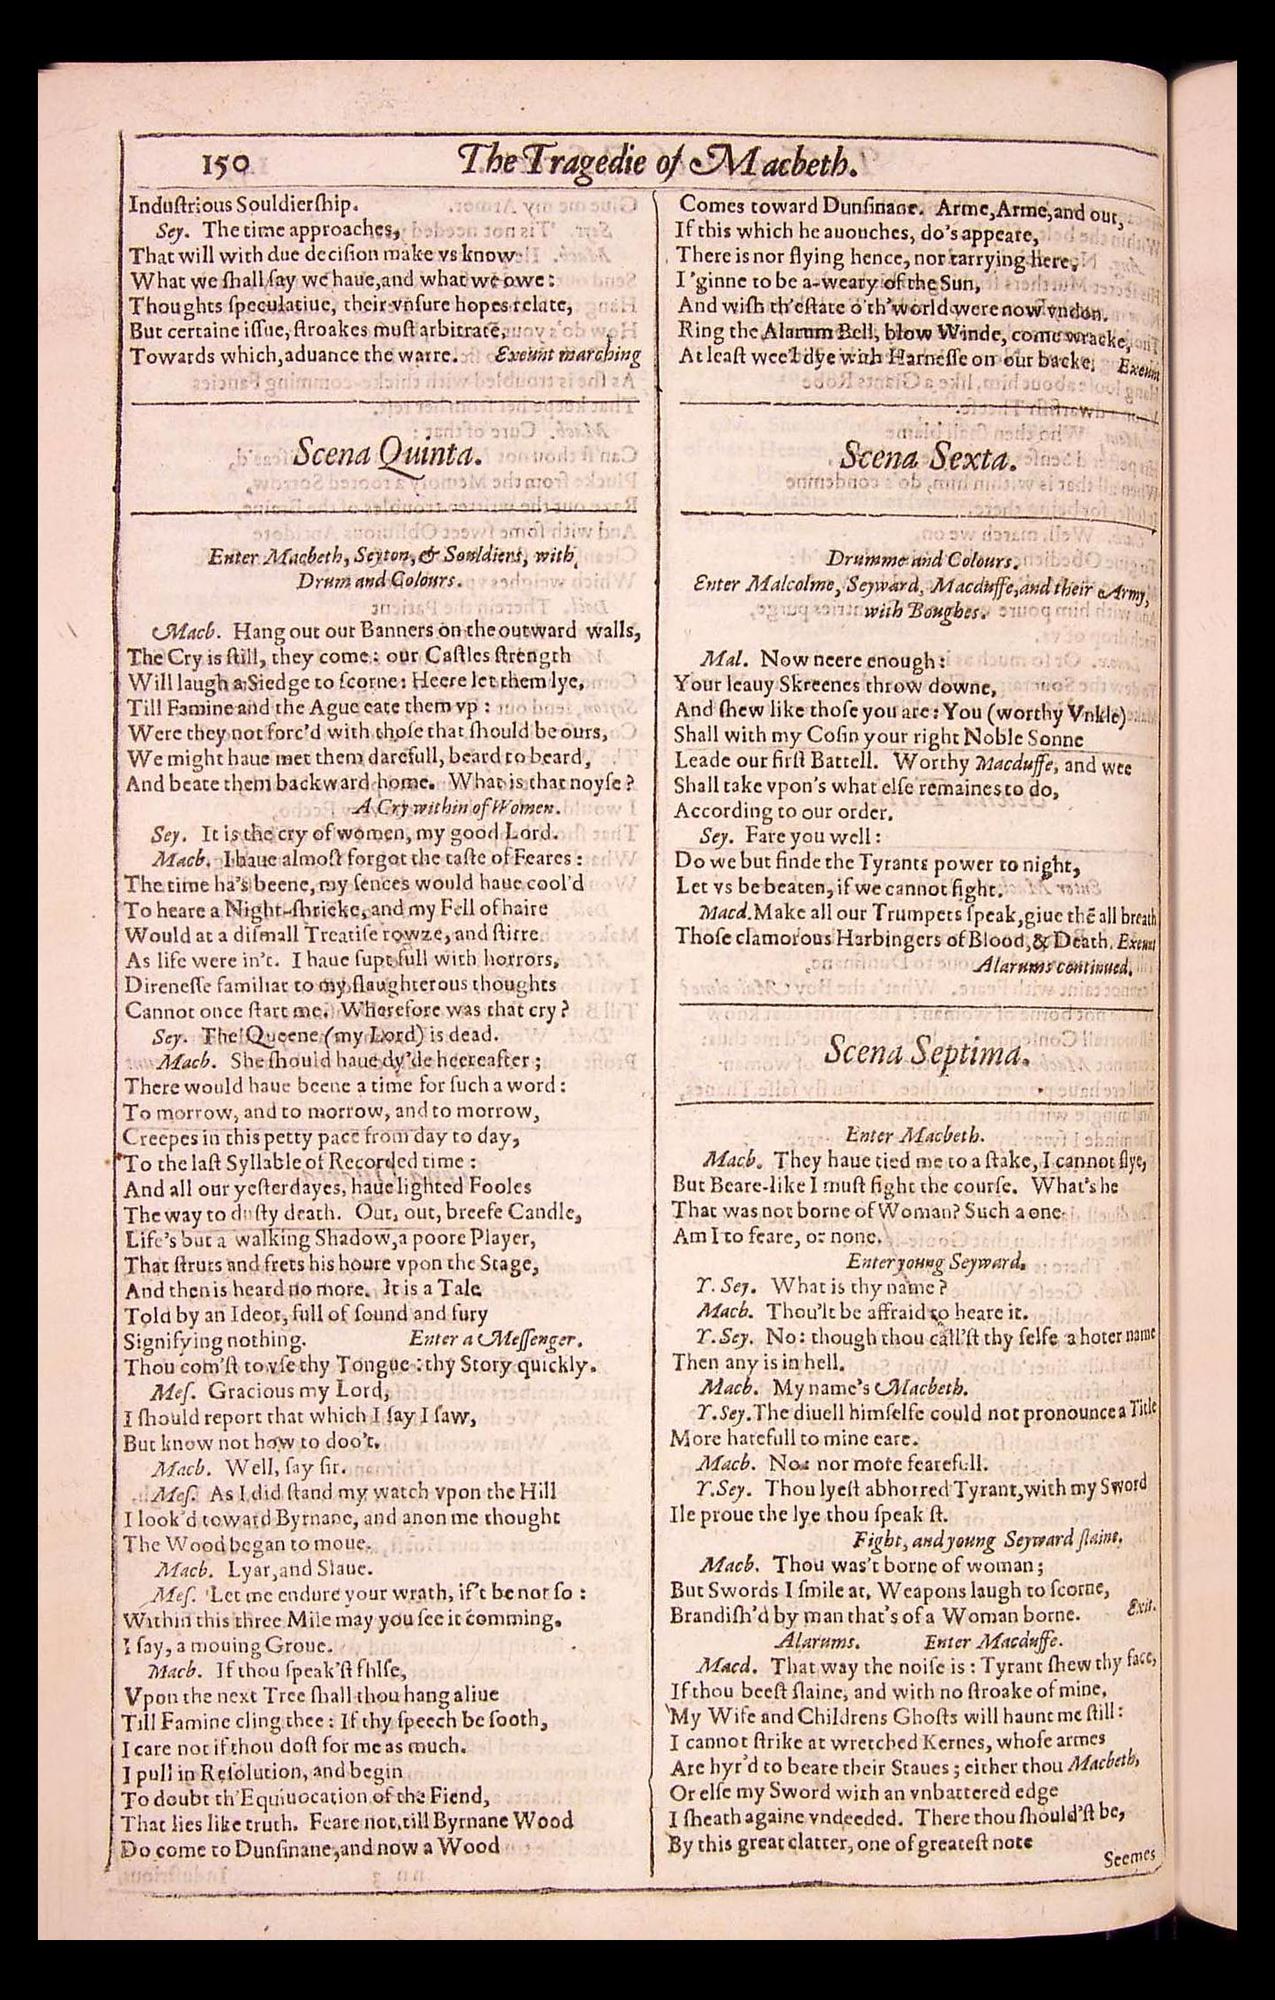 150
The Tragedie of Macbeth.
Induſtrious Souldierſhip.
Sey. The time approaches,
That will with due deciſion make vs know
What we ſhall ſay we haue, and what we owe:
Thoughts ſpeculatiue, their vnſure hopes relate,
But certaine iſſue, ſtroakes muſt arbitrate,
Towards which, aduance the warre. Exeunt marching
Scena Quinta.
Enter Macbeth, Seyton, & Souldiers, with
Drum and Colours.
Macb. Hang out our Banners on the outward walls,
The Cry is ſtill, they come: our Caſtles ſtrength
Will laugh a Siedge to ſcorne: Heere let them lye,
Till Famine and the Ague eate them vp:
Were they not forc'd with thoſe that ſhould be ours,
We might haue met them darefull, beard to beard,
And beate them backward home. What is that noyſe?
A Cry within of Women.
Sey. It is the cry of women, my good Lord.
Macb. I haue almoſt forgot the taſte of Feares:
The time ha's beene, my ſences would haue cool'd
To heare a Night-ſhrieke, and my Fell of haire
Would at a diſmall Treatiſe rowze, and ſtirre
As life were in't. I haue ſupt full with horrors,
Direneſſe familiar to my ſlaughterous thoughts
Cannot once ſtart me. Wherefore was that cry?
Sey. The Queene (my Lord) is dead.
Macb. She ſhould haue dy'de heereafter;
There would haue beene a time for ſuch a word:
To morrow, and to morrow, and to morrow,
Creepes in this petty pace from day to day,
To the laſt Syllable of Recorded time:
And all our yeſterdayes, haue lighted Fooles
The way to duſty death. Out, out, breefe Candle,
Life's but a walking Shadow, a poore Player,
That ſtruts and frets his houre vpon the Stage,
And then is heard no more. It is a Tale
Told by an Ideot, full of ſound and fury
Signifying nothing. Enter a Meſſenger.
Thou com'ſt to vſe thy Tongue: thy Story quickly.
Meſ. Gracious my Lord,
I ſhould report that which I ſay I ſaw,
But know not how to doo't.
Macb. Well, ſay ſir.
Meſ. As I did ſtand my watch vpon the Hill
I look'd toward Byrnane, and anon me thought
The Wood began to moue.
Macb. Lyar, and Slaue.
Meſ. Let me endure your wrath, if't be not ſo:
Within this three Mile may you ſee it comming.
I ſay, a mouing Groue.
Macb. If thou ſpeak'ſt fhlſe,
Vpon the next Tree ſhall thou hang aliue
Till Famine cling thee: If thy ſpeech be ſooth,
I care not if thou doſt for me as much.
I pull in Reſolution, and begin
To doubt th'Equiuocation of the Fiend,
That lies like truth. Feare not, till Byrnane Wood
Do come to Dunſinane, and now a Wood
Comes toward Dunſinane. Arme, Arme, and out,
If this which he auouches, do's appeare,
There is nor flying hence, nor tarrying here.
I 'ginne to be a-weary of the Sun,
And wiſh th'eſtate o'th'world were now vndon.
Ring the Alarum Bell, blow Winde, come wracke,
At leaſt wee'l dye with Harneſſe on our backe. Exeunt
Scena Sexta.
Drumme and Colours.
Enter Malcolme, Seyward, Macduffe, and their Army,
with Boughes.
Mal. Now neere enough:
Your leauy Skreenes throw downe,
And ſhew like thoſe you are: You (worthy Vnkle)
Shall with my Coſin your right Noble Sonne
Leade our firſt Battell. Worthy Macduffe, and wee
Shall take vpon's what elſe remaines to do,
According to our order.
Sey. Fare you well:
Do we but finde the Tyrants power to night,
Let vs be beaten, if we cannot fight.
Macd. Make all our Trumpets ſpeak, giue thē all breath
Thoſe clamorous Harbingers of Blood, & Death. Exeunt
Alarums continued.
Scena Septima.
Enter Macbeth.
Macb. They haue tied me to a ſtake, I cannot flye,
But Beare-like I muſt fight the courſe. What's he
That was not borne of Woman? Such a one
Am I to feare, or none.
Enter young Seyward.
Y. Sey. What is thy name?
Macb. Thou'lt be affraid to heare it.
Y. Sey. No: though thou call'ſt thy ſelfe a hoter name
Then any is in hell.
Macb. My name's Macbeth.
Y. Sey. The diuell himſelfe could not pronounce a Title
More hatefull to mine eare.
Macb. No: nor more fearefull.
Y. Sey. Thou lyeſt abhorred Tyrant, with my Sword
Ile proue the lye thou ſpeak'ſt.
Fight, and young Seyward ſlaine.
Macb. Thou was't borne of woman;
But Swords I ſmile at, Weapons laugh to ſcorne,
Brandiſh'd by man that's of a Woman borne. Exit.
Alarums. Enter Macduffe.
Macd. That way the noiſe is: Tyrant ſhew thy face,
If thou beeſt ſlaine, and with no ſtroake of mine,
My Wife and Childrens Ghoſts will haunt me ſtill:
I cannot ſtrike at wretched Kernes, whoſe armes
Are hyr'd to beare their Staues; either thou Macbeth,
Or elſe my Sword with an vnbattered edge
I ſheath againe vndeeded. There thou ſhould'ſt be,
By this great clatter, one of greateſt note
Seemes